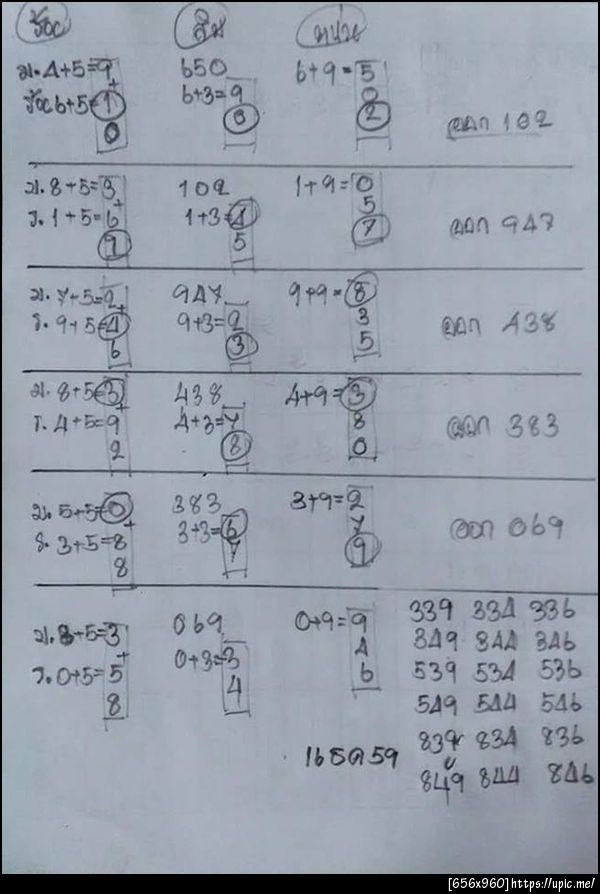 ร้อย สิบ หน่วย
ม. 4+5=9 650 6+9=5
ร้อย 6+5=1 6+3=9 0
0 0 2 ออก 102
ม. 8+5=3 102 1+9=0
ร. 1+5=6 1+3=4 5
9 5 7 ออก 947
ม. 7+5=2 947 9+9=8
ร. 9+5=4 9+3=2 3
6 3 5 ออก 438
ม. 8+5=3 438 4+9=3
ร. 4+5=9 4+3=7 8
2 8 0 ออก 383
ม. 5+5=0 383 3+9=2
ร. 3+5=8 3+3=6 7
8 7 9 ออก 069
ม. 8+5=3 069 0+9=9
ร. 0+5=5 0+3=3 4
8 4 6
339 334 336
349 344 346
539 534 536
549 544 546
839 834 836
849 844 846
16 59
[656x960]https://upic.me/